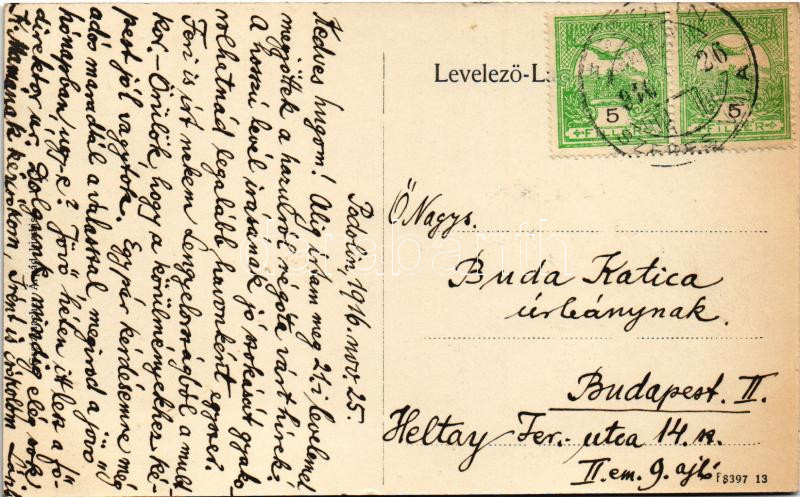 Podolin, 1916. nov. 25.
Kedves hugom! Alig irtam meg 21-i levelemet
megjöttek a hazulról régóta várt hirek.
a hosszú levél irásának jó szokását gyako-
rolhatnád legalább havonként egyszer.
Feri is irt nekem Lengyelországból a mult-
kor. - Örülök, hogy a körülményekhez ké-
pest jól vagytok. Egypár kérdésemre még
adós maradtál a válasszal, megirod a jövő
hónapban, úgy-e? Jövő héten itt lesz a fő-
direktor úr. Dolgunk mindig elég sok.
K. Mamának kézcsókom Irént is csókolom
Levelező-La
MAGYAR KIR. POSTA
5
FILLÉR
MAGYAR KIR. POSTA
5
FILLÉR
916
26
Ő Nagys.
Buda Katica
úrleánynak.
Budapest. II.
Heltay Fer. utca 14. sz.
II. em. 9. ajtó
F 8397 13
darabanth